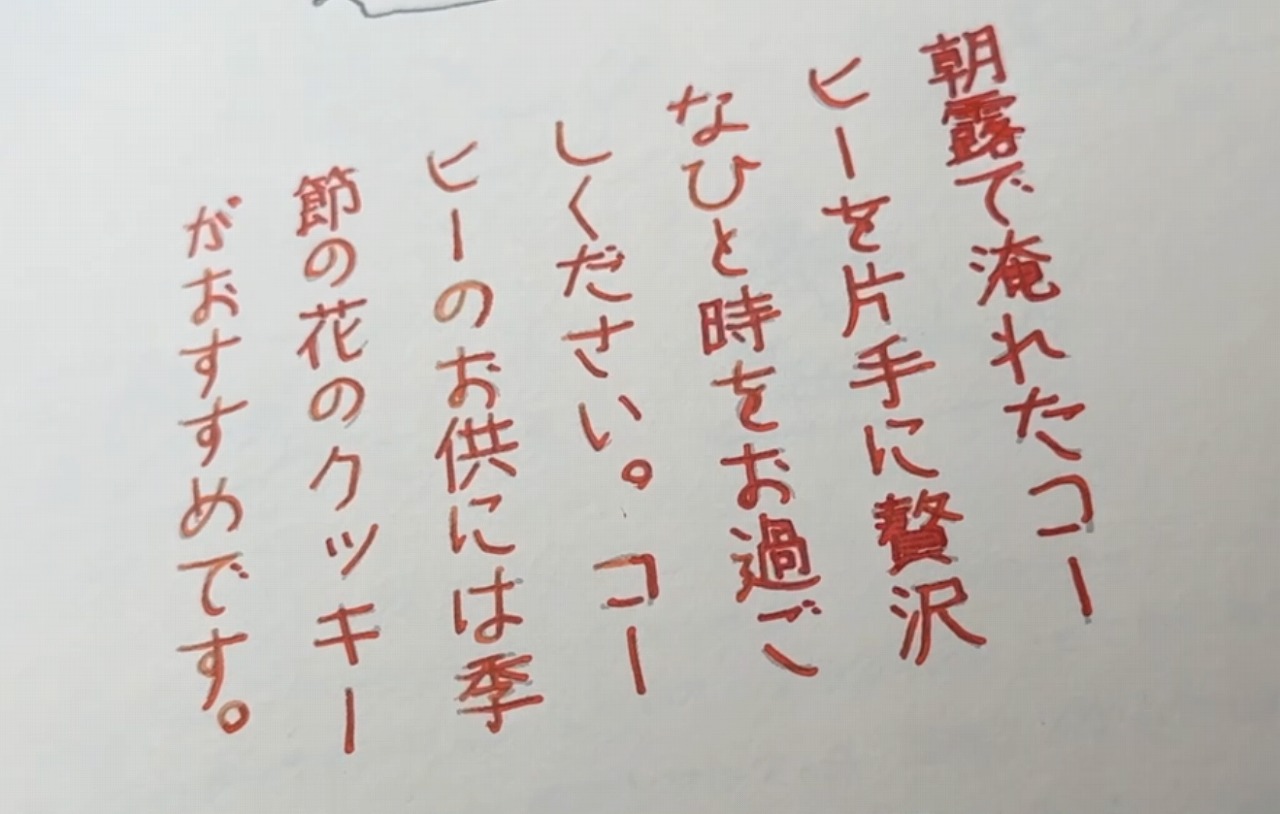 朝露で淹れたコー
ヒーを片手に贅沢
なひと時をお過ご
しください。コー
ヒーのお供には季
節の花のクッキー
がおすすめです。